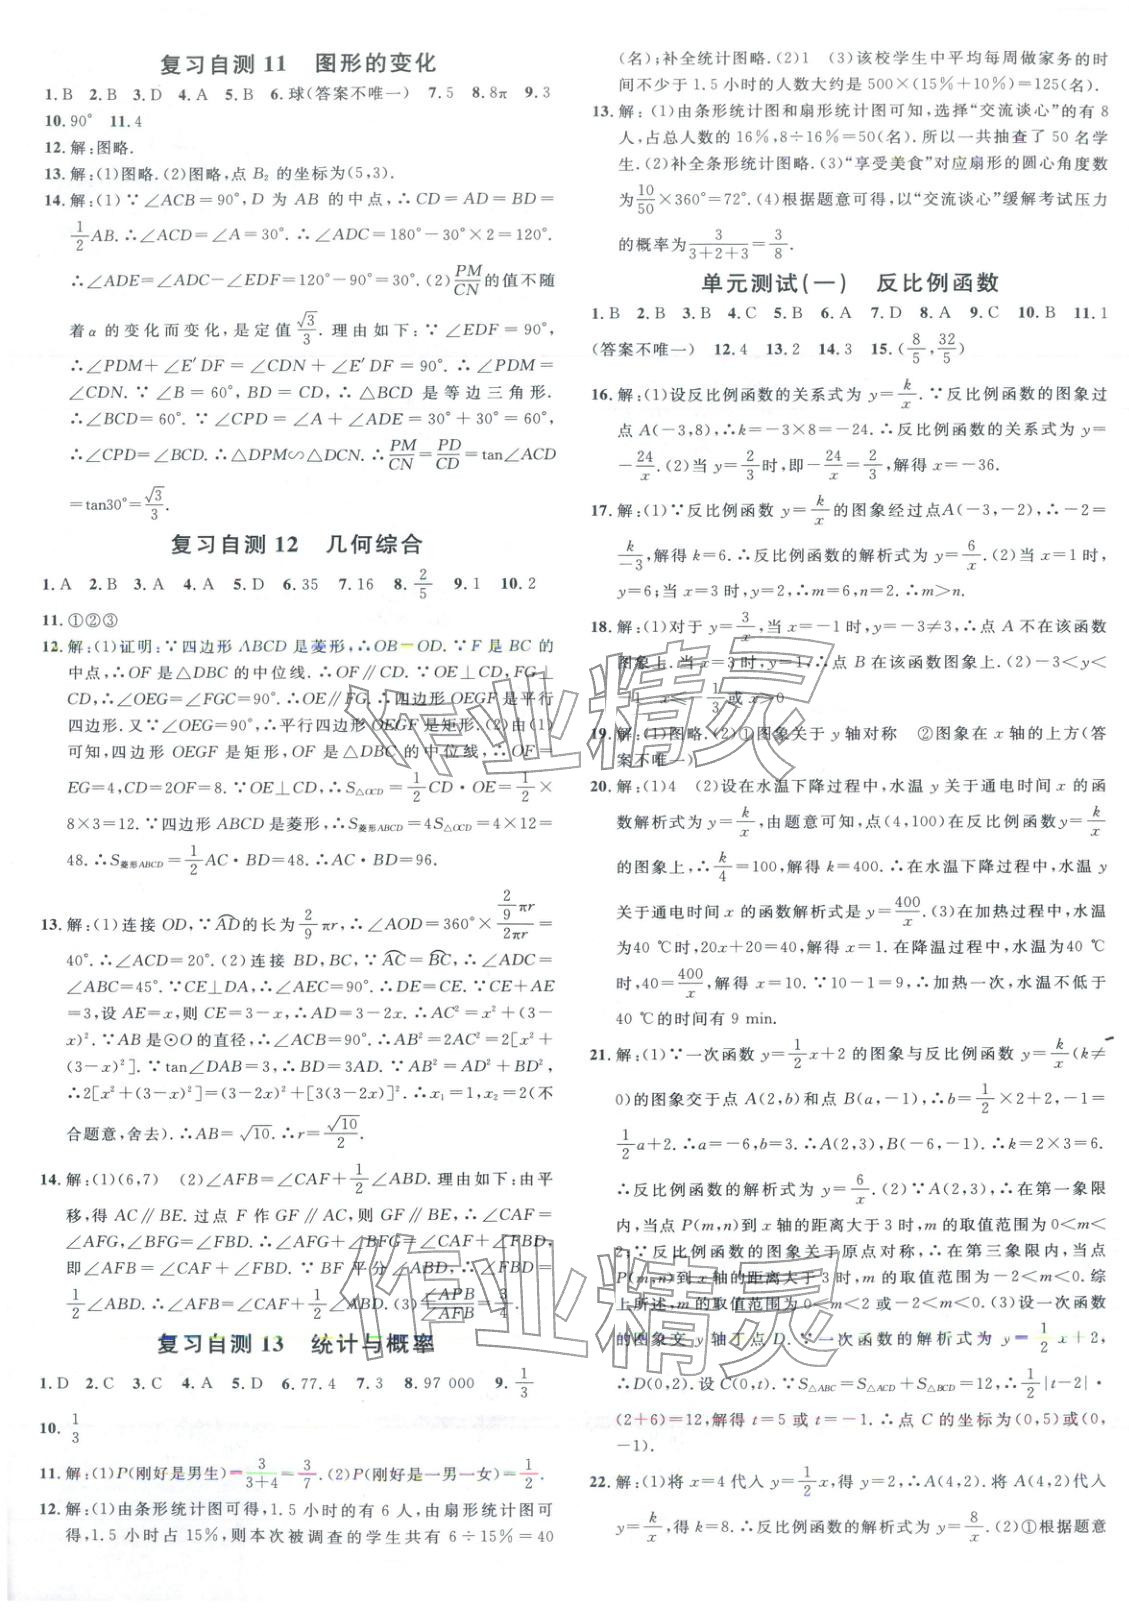 复习自测 11　图形的变化
1. B　2. B　3. D　4. A　5. B　6. 球(答案不唯一)　7. 5　8. 8π　9. 3
10. 90°　11. 4
12. 解:图略.
13. 解:(1)图略.(2)图略,点 B₂ 的坐标为(5,3).
14. 解:(1)∵∠ACB=90°,D 为 AB 的中点,∴CD=AD=BD=
1/2 AB.∴∠ACD=∠A=30°.∴∠ADC=180°-30°×2=120°.
∴∠ADE=∠ADC-∠EDF=120°-90°=30°.(2) PM/CN 的值不随
着 α 的变化而变化,是定值 √3/3. 理由如下:∵∠EDF=90°,
∴∠PDM+∠E′DF=∠CDN+∠E′DF=90°.∴∠PDM=
∠CDN.∵∠B=60°,BD=CD,∴△BCD 是等边三角形.
∴∠BCD=60°.∵∠CPD=∠A+∠ADE=30°+30°=60°,
∴∠CPD=∠BCD.∴△DPM∽△DCN.∴PM/CN=PD/CD=tan∠ACD
=tan30°=√3/3.
复习自测 12　几何综合
1. A　2. B　3. A　4. A　5. D　6. 35　7. 16　8. 2/5　9. 1　10. 2
11. ①②③
12. 解:(1)证明:∵四边形 ABCD 是菱形,∴OB=OD.∵F 是 BC 的
中点,∴OF 是△DBC 的中位线.∴OF∥CD.∵OE⊥CD,FG⊥
CD,∴∠OEG=∠FGC=90°.∴OE∥FG.∴四边形 OEGF 是平行
四边形.又∵∠OEG=90°,∴平行四边形 OEGF 是矩形.(2)由(1)
可知,四边形 OEGF 是矩形,OF 是△DBC 的中位线,∴OF=
EG=4,CD=2OF=8.∵OE⊥CD,∴S△OCD=1/2 CD·OE=1/2×
8×3=12.∵四边形 ABCD 是菱形,∴S菱形ABCD=4S△OCD=4×12=
48.∴S菱形ABCD=1/2 AC·BD=48.∴AC·BD=96.
13. 解:(1)连接 OD,∵AD⌒的长为 2/9 πr,∴∠AOD=360°×(2/9 πr)/(2πr)=
40°.∴∠ACD=20°.(2)连接 BD,BC,∵AC⌒=BC⌒,∴∠ADC=
∠ABC=45°.∵CE⊥DA,∴∠AEC=90°.∴DE=CE.∵CE+AE
=3,设 AE=x,则 CE=3-x,∴AD=3-2x.∴AC²=x²+(3-
x)².∵AB 是⊙O 的直径,∴∠ACB=90°.∴AB²=2AC²=2[x²+
(3-x)²].∵tan∠DAB=3,∴BD=3AD.∵AB²=AD²+BD²,
∴2[x²+(3-x)²]=(3-2x)²+[3(3-2x)]².∴x₁=1,x₂=2(不
合题意,舍去).∴AB=√10.∴r=√10/2.
14. 解:(1)(6,7)　(2)∠AFB=∠CAF+1/2∠ABD.理由如下:由平
移,得 AC∥BE. 过点 F 作 GF∥AC,则 GF∥BE,∴∠CAF=
∠AFG,∠BFG=∠FBD.∴∠AFB=∠AFG+∠BFG=∠CAF+∠FBD,
即∠AFB=∠CAF+∠FBD.∵BF 平分∠ABD,∴∠FBD=
1/2∠ABD.∴∠AFB=∠CAF+1/2∠ABD.(3)∠APB/∠AFB=3/4.
复习自测 13　统计与概率
1. D　2. C　3. C　4. A　5. D　6. 77.4　7. 3　8. 97 000　9. 1/3
10. 1/3
11. 解:(1)P(刚好是男生)=3/(3+4)=3/7.(2)P(刚好是一男一女)=1/2.
12. 解:(1)由条形统计图可得,1.5 小时的有 6 人,由扇形统计图可
得,1.5 小时占 15%,则本次被调查的学生共有 6÷15%=40
(名);补全统计图略.(2)1　(3)该校学生中平均每周做家务的时
间不少于 1.5 小时的人数大约是 500×(15%+10%)=125(名).
13. 解:(1)由条形统计图和扇形统计图可知,选择“交流谈心”的有 8
人,占总人数的 16%,8÷16%=50(名).所以一共抽查了 50 名学
生.(2)补全条形统计图略.(3)“享受美食”对应扇形的圆心角度数
为 10/50×360°=72°.(4)根据题意可得,以“交流谈心”缓解考试压力
的概率为 3/(3+2+3)=3/8.
单元测试(一)　反比例函数
1. B　2. B　3. B　4. C　5. B　6. A　7. D　8. A　9. C　10. B　11. 1
(答案不唯一)　12. 4　13. 2　14. 3　15. (8/5,32/5)
16. 解:(1)设反比例函数的关系式为 y=k/x.∵反比例函数的图象过
点 A(-3,8),∴k=-3×8=-24.∴反比例函数的关系式为 y=
-24/x.(2)当 y=2/3时,即-24/x=2/3,解得 x=-36.
17. 解:(1)∵反比例函数 y=k/x的图象经过点A(-3,-2),∴-2=
k/-3,解得 k=6.∴反比例函数的解析式为 y=6/x.(2)当 x=1 时,
y=6;当 x=3 时,y=2,∴m=6,n=2.∴m>n.
18. 解:(1)对于 y=3/x,当 x=-1 时,y=-3≠3,∴点 A 不在该函数
图象上.当 x=3 时,y=1,∴点 B 在该函数图象上.(2)-3<y<
-1　x≤-1/3或 x>0
19. 解:(1)图略.(2)①图象关于 y 轴对称　②图象在 x 轴的上方(答
案不唯一)
20. 解:(1)4　(2)设在水温下降过程中,水温 y 关于通电时间 x 的函
数解析式为 y=k/x,由题意可知,点(4,100)在反比例函数 y=k/x
的图象上,∴k/4=100,解得 k=400.∴在水温下降过程中,水温 y
关于通电时间 x 的函数解析式是 y=400/x.(3)在加热过程中,水温
为40 ℃时,20x+20=40,解得 x=1. 在降温过程中,水温为40 ℃
时,40=400/x,解得 x=10.∵10-1=9,∴加热一次,水温不低于
40 ℃的时间有 9 min.
21. 解:(1)∵一次函数 y=1/2 x+2 的图象与反比例函数 y=k/x(k≠
0)的图象交于点 A(2,b)和点 B(a,-1),∴b=1/2×2+2,-1=
1/2 a+2.∴a=-6,b=3.∴A(2,3),B(-6,-1).∴k=2×3=6.
∴反比例函数的解析式为 y=6/x.(2)∵A(2,3),∴在第一象限
内,当点 P(m,n)到 x 轴的距离大于 3 时,m 的取值范围为 0<m<
2;∵反比例函数的图象关于原点对称,∴在第三象限内,当点
P(m,n)到 x 轴的距离大于 3 时,m 的取值范围为-2<m<0.综
上所述,m 的取值范围为 0<m<2 或-2<m<0.(3)设一次函数
的图象交 y 轴于点 D.∵一次函数的解析式为 y=1/2 x+2,
∴D(0,2).设 C(0,t).∵S△ABC=S△ACD+S△BCD=12,∴1/2|t-2|·
(2+6)=12,解得 t=5 或 t=-1.∴点 C 的坐标为(0,5)或(0,
-1).
22. 解:(1)将 x=4 代入 y=1/2 x,得 y=2,∴A(4,2).将 A(4,2)代入
y=k/x,得 k=8.∴反比例函数的解析式为 y=8/x.(2)①根据题意
作业精灵
作业精灵